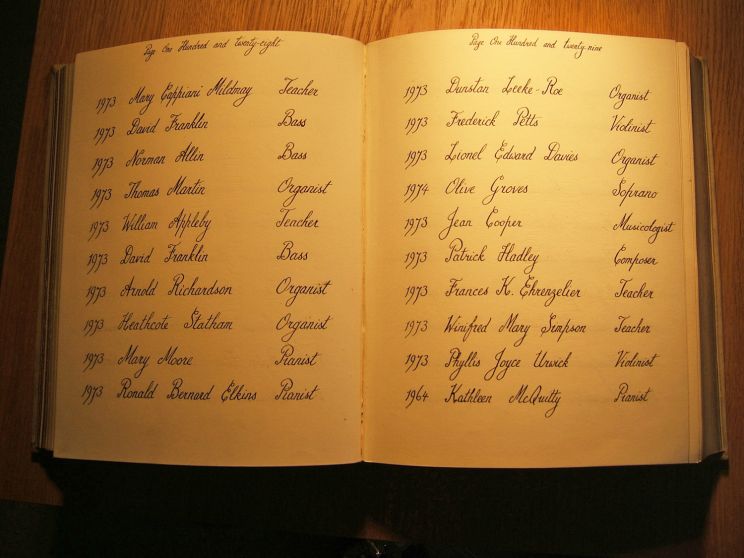 Page One Hundred and twenty-eight
1973 Mary Cappiani Mildmay Teacher
1973 David Franklin Bass
1973 Norman Allin Bass
1973 Thomas Martin Organist
1973 William Appleby Teacher
1973 David Franklin Bass
1973 Arnold Richardson Organist
1973 Heathcote Statham Organist
1973 Mary Moore Pianist
1973 Ronald Bernard Elkins Pianist
Page One Hundred and twenty-nine
1973 Dunstan Leeke-Roe Organist
1973 Frederick Petts Violinist
1973 Lionel Edward Davies Organist
1974 Olive Groves Soprano
1973 Jean Cooper Musicologist
1973 Patrick Hadley Composer
1973 Frances K. Ehrenzelier Teacher
1973 Winifred Mary Simpson Teacher
1973 Phyllis Joyce Urwick Violinist
1964 Kathleen McQuitty Pianist